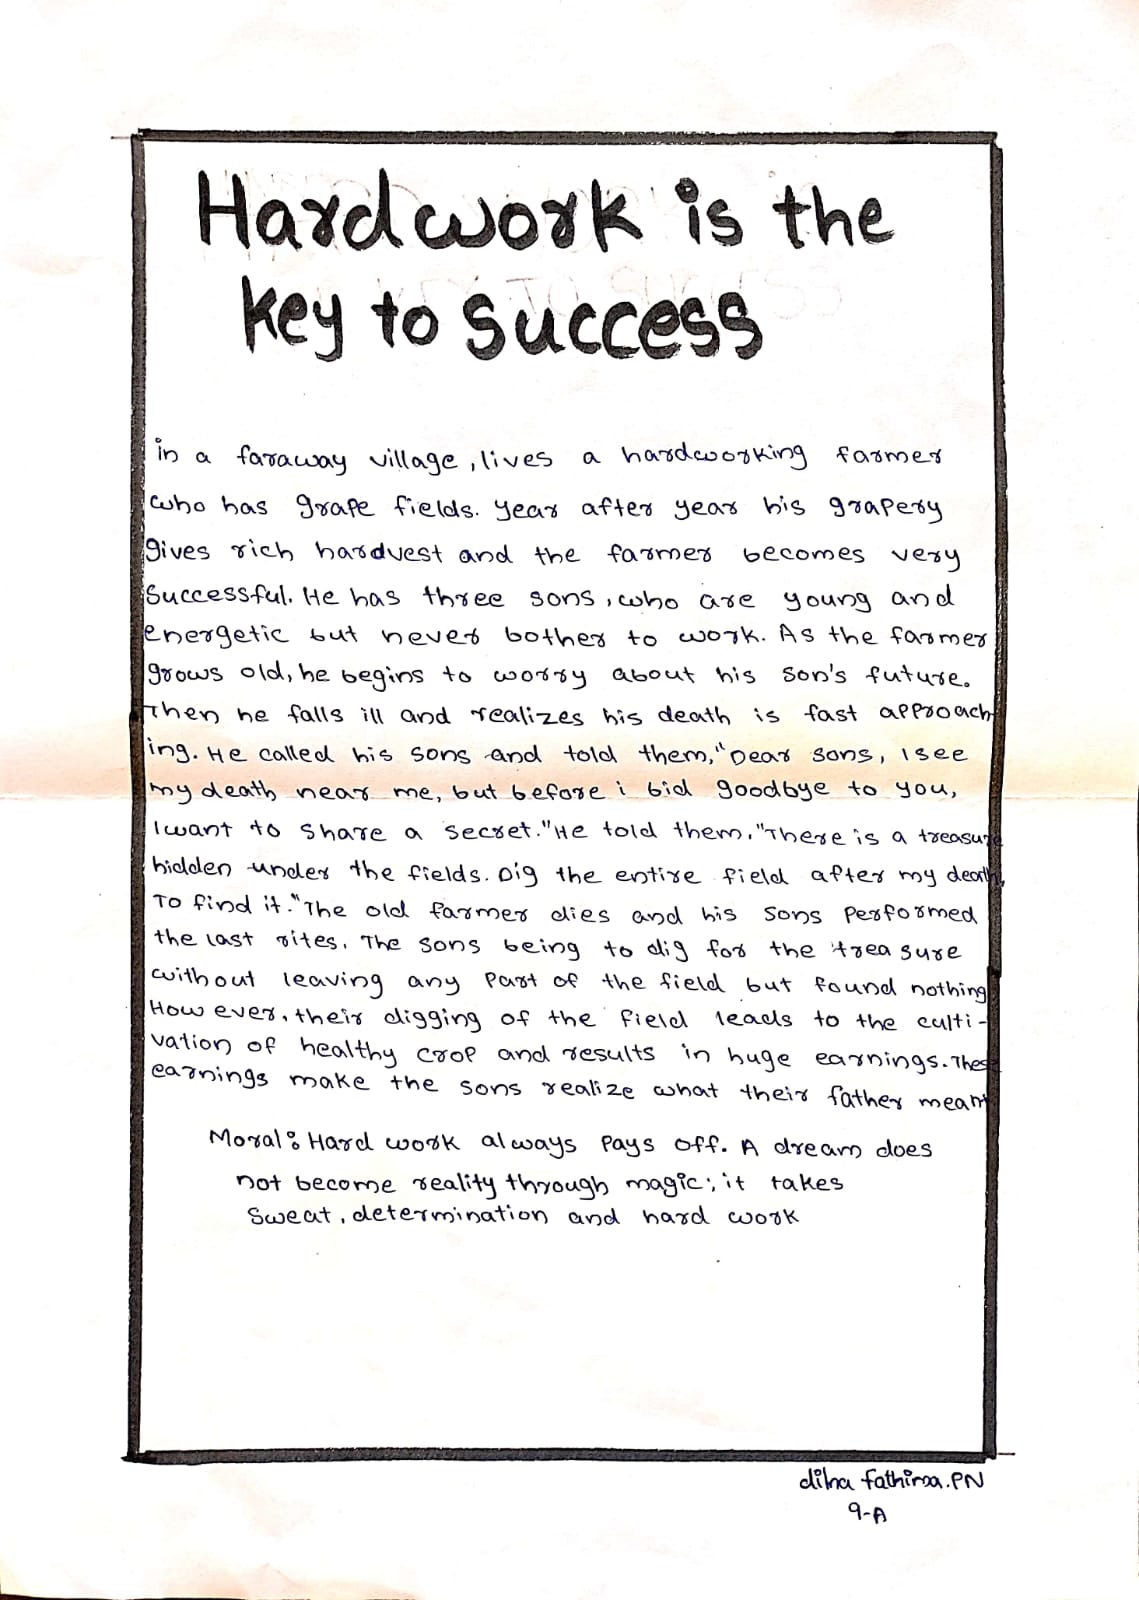 Hardwork is the
key to success
in a faraway village, lives a hardworking farmer
who has grape fields. year after year his grapery
gives rich hardvest and the farmer becomes very
successful. He has three sons, who are young and
energetic but never bother to work. As the farmer
grows old, he begins to worry about his son's future.
Then he falls ill and realizes his death is fast approach
ing. He called his sons and told them, "Dear sons, I see
my death near me, but before i bid goodbye to you,
I want to share a secret." He told them, "There is a treasure
hidden under the fields. Dig the entire field after my death,
To find it." The old farmer dies and his sons performed
the last rites. The sons being to dig for the treasure
without leaving any part of the field but found nothing
However, their digging of the field leads to the culti-
vation of healthy crop and results in huge earnings. These
earnings make the sons realize what their father meant
Moral: Hard work always pays off. A dream does
not become reality through magic; it takes
sweat, determination and hard work
dilna fathima.PN
9-A